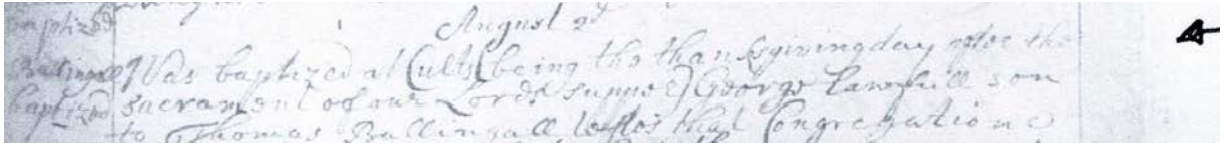 baptized
August 2d
Ballingall Was baptized at Cults (being the thanksgivingday after the
baptized sacrament of our Lords supper) George lawfull son
to Thomas Ballingall before that Congregatione